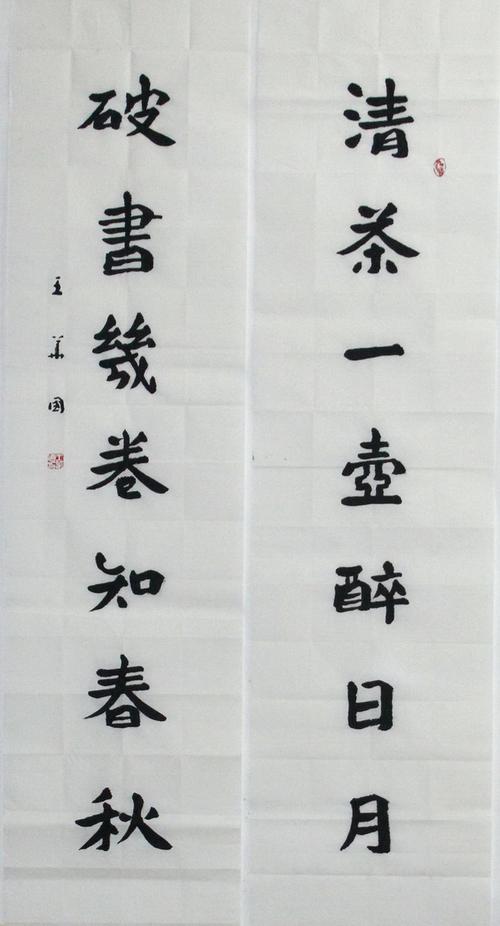 清茶一壺醉日月
破書幾卷知春秋
王華國